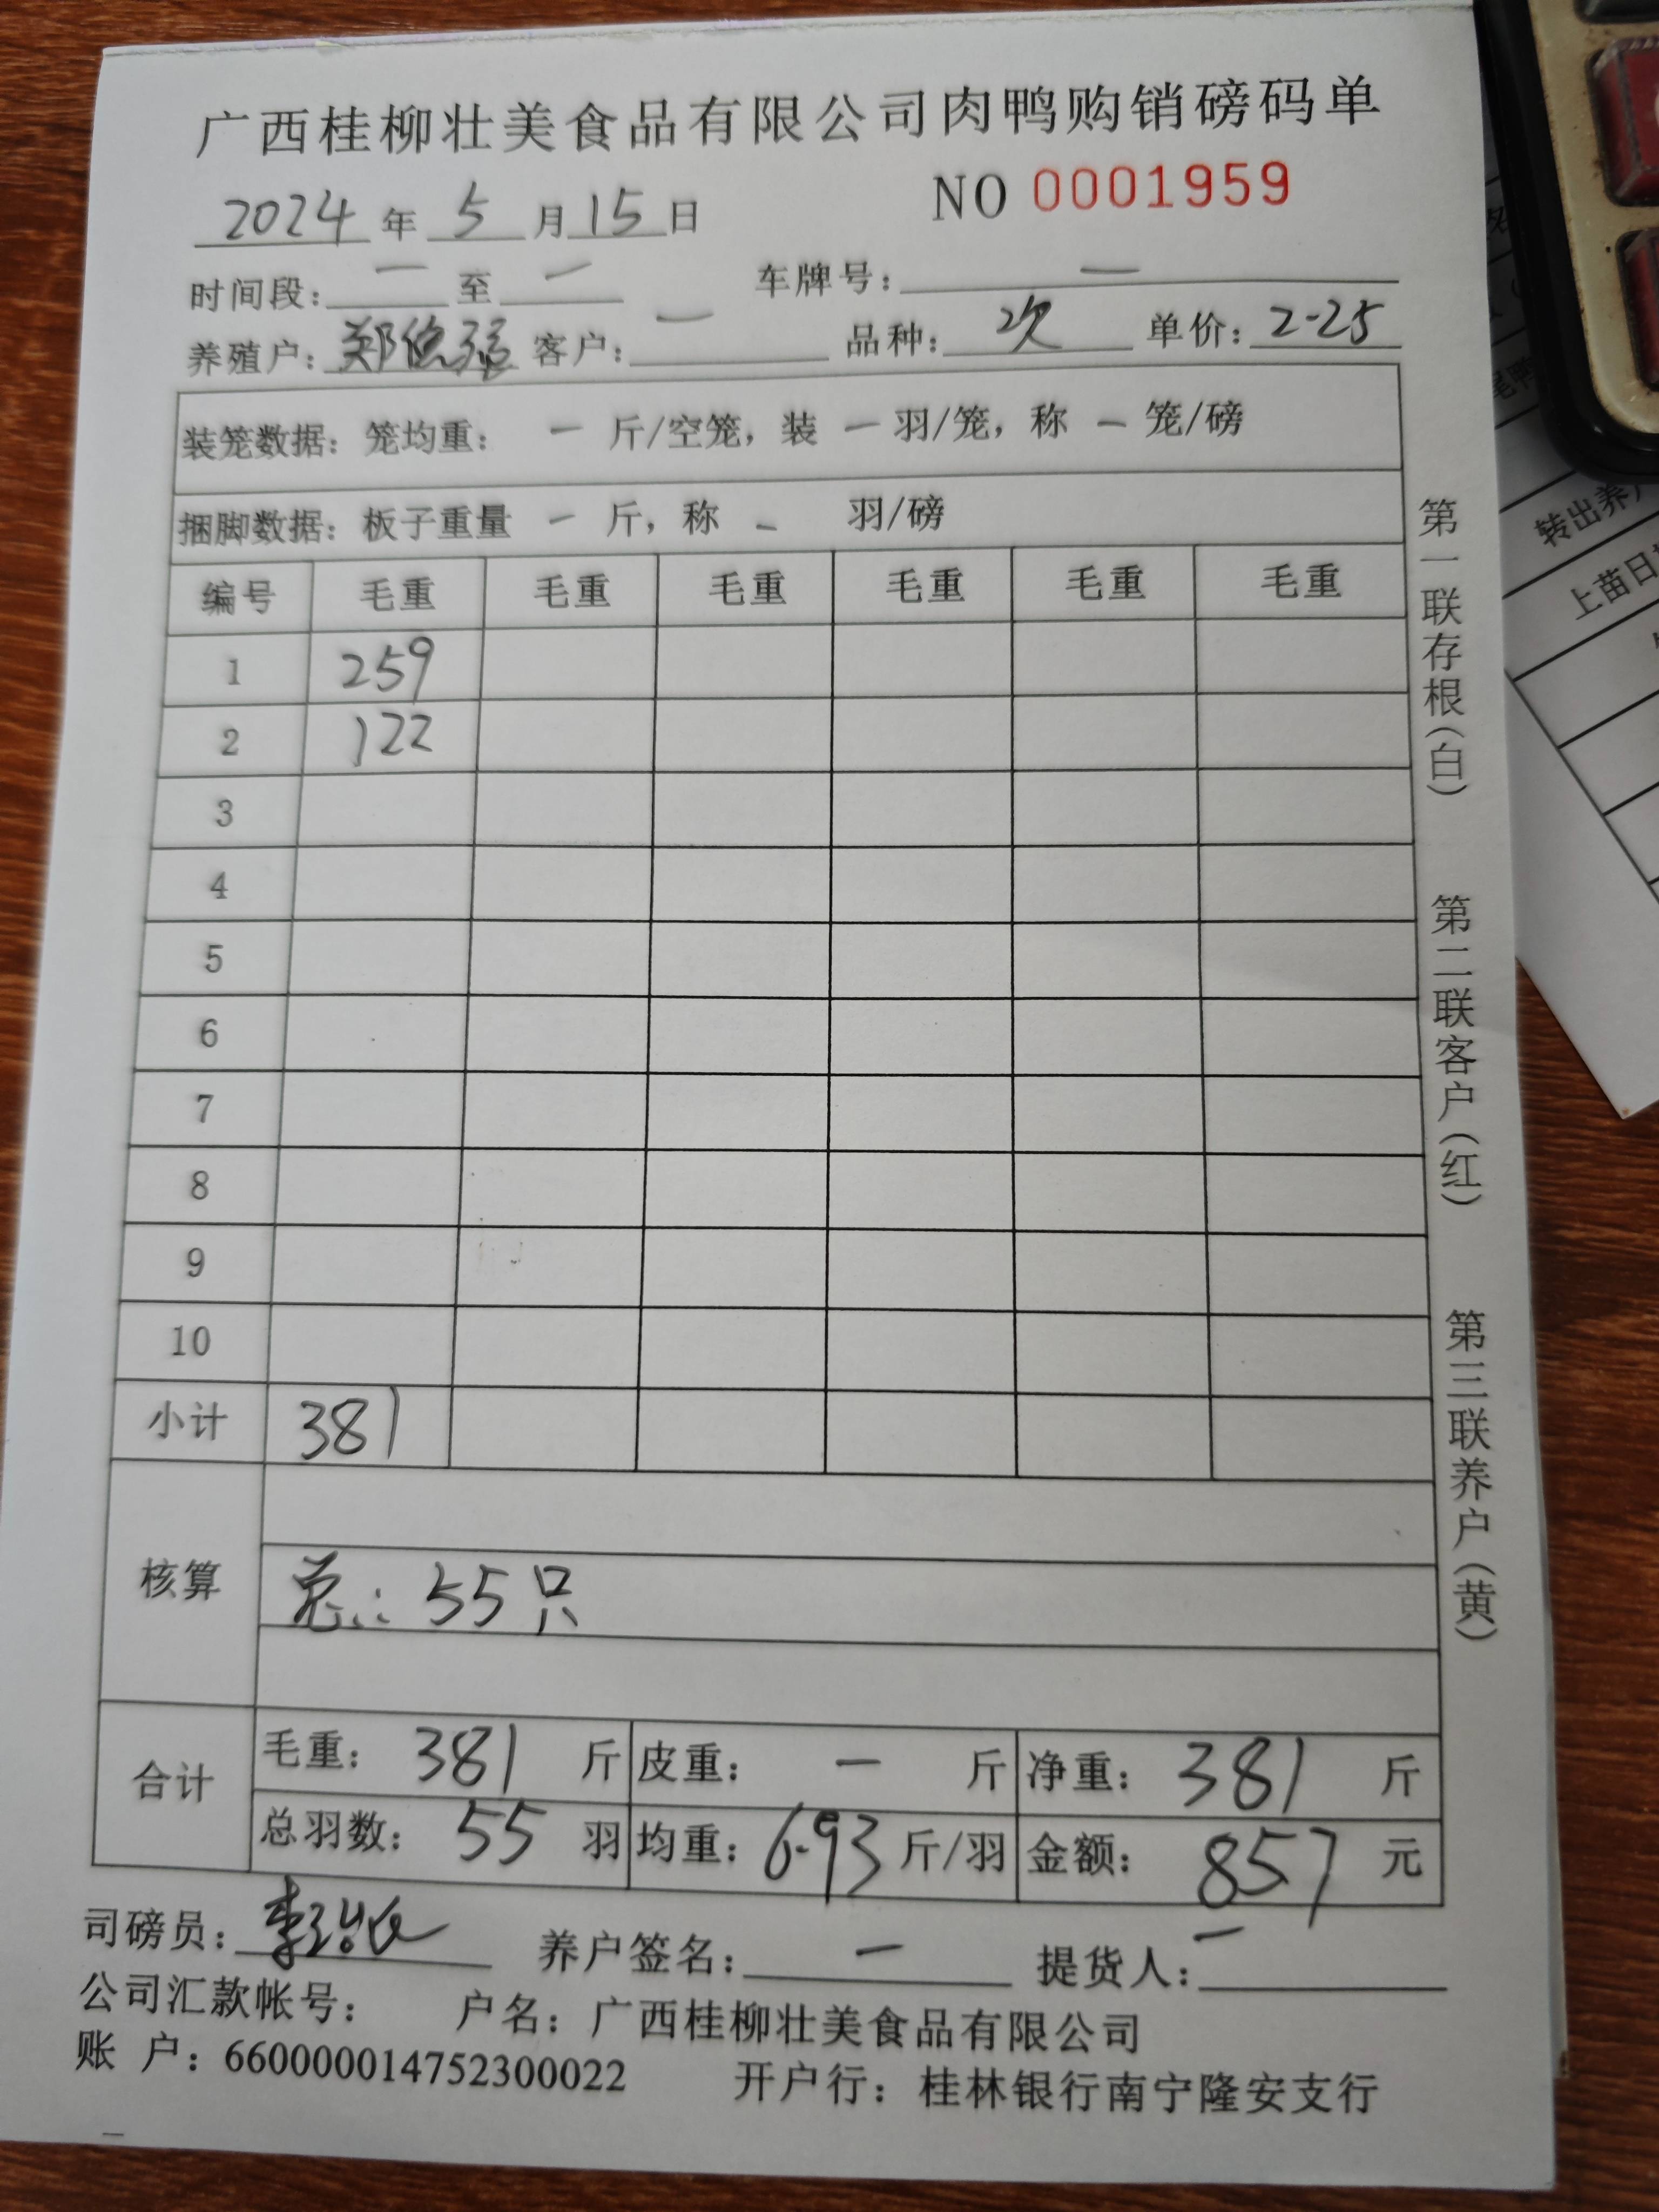 广西桂柳壮美食品有限公司肉鸭购销磅码单
2024年5月15日 NO 0001959
时间段：一至一 车牌号：一
养殖户：郑德强 客户：一 品种：次 单价：2-25
装笼数据：笼均重：一斤/空笼，装一羽/笼，称一笼/磅
捆脚数据：板子重量一斤，称一羽/磅
编号 毛重 毛重 毛重 毛重 毛重 毛重
1 259
2 122
3
4
5
6
7
8
9
10
小计 381
核算 总：55只
合计 毛重：381斤 皮重：一斤 净重：381斤
总羽数：55羽 均重：6.93斤/羽 金额：857元
司磅员：李 养户签名：一 提货人：一
公司汇款帐号： 户名：广西桂柳壮美食品有限公司
账 户：660000014752300022 开户行：桂林银行南宁隆安支行
第一联存根（白） 第二联客户（红） 第三联养户（黄）
转出养户
上苗日